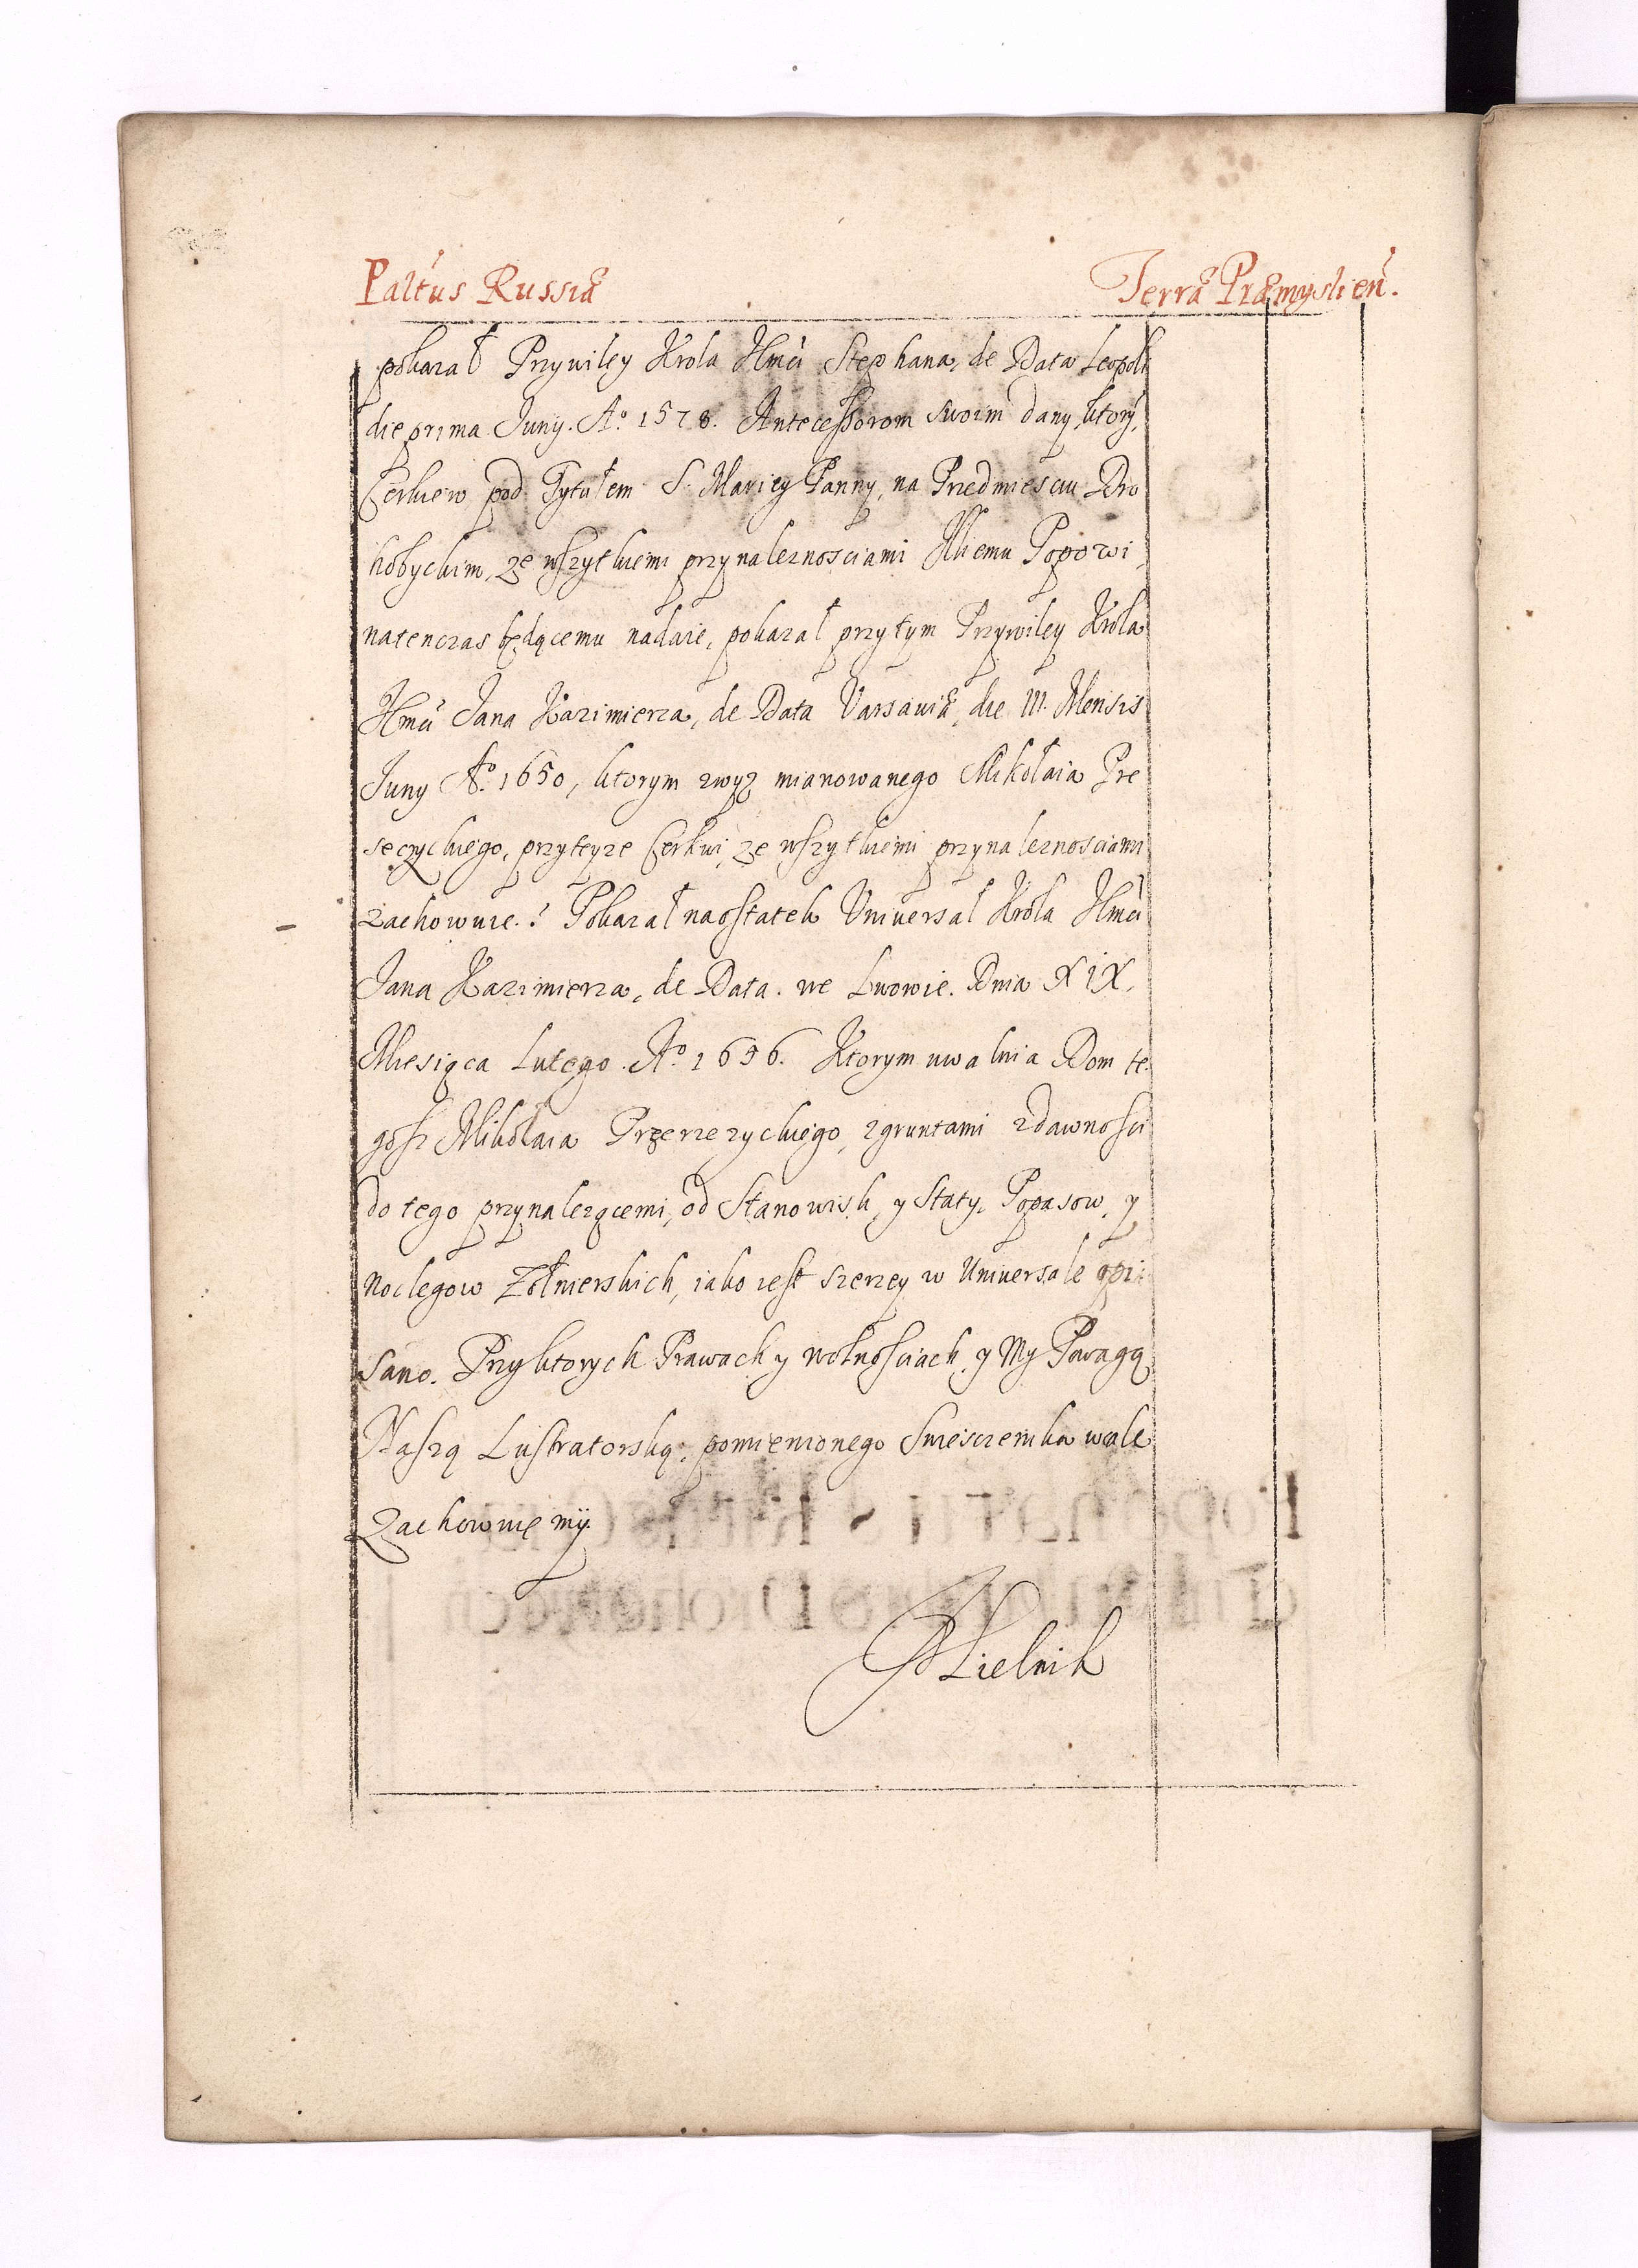 Paltus Russiæ Terræ Præmyslien.
pokazał Przywiley Krola JKmci Stephana, de Data Leopoli
die prima Juny. Aº 1578. Antecessorom swoim dany, ktory,
Cerkiew pod Tytułem S. Mariey Panny, na Przedmiesciu Dro
hobyckim, ze wszytkiemi przynaleznosciami Iliemu Popowi,
natenczas będącemu nadaie, pokazał przytym Przywiley Krola
JKmci Jana Kazimierza, de Data Varsaviæ, die III. Mensis
Juny Aº. 1650, ktorym zwyz mianowanego Mikołaia Prze
seczyckiego, przyteyze Cerkwi, ze wszytkiemi przynaleznosciami
zachowuie. Pokazał naostatek Uniwersał Krola JKmci
Jana Kazimierza, de Data. we Lwowie. Dnia XIX.
Miesiąca Lutego. Aº. 1656. Ktorym uwalnia Dom te.
gosz Mikołaia Przerzezyckiego, zgruntami zdawnosci
do tego przynalezącemi, od Stanowisk, y Staty, Popasow, y
Noclegow Zołnierskich, iako iest szerzey w Uniwersale opi
sano. Przyktorych Prawach y wolnosciach, y My Powagą
Naszą Lustratorską, pomienionego Swiesczenika wcale
Zachowuiemy.